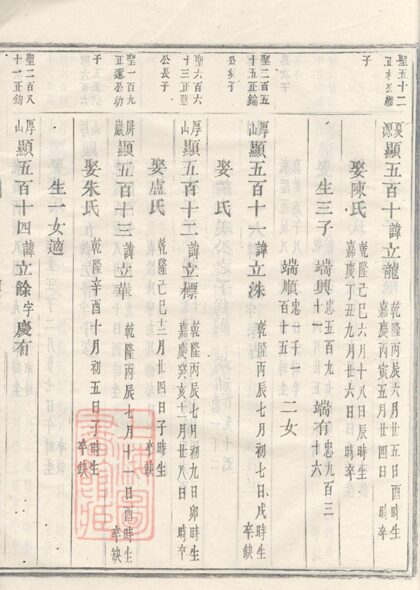 聖五十二
子
夏源
顯五百十 諱立龍 乾隆丙辰六月五日酉時生
嘉慶丙寅五月廿四日 時卒
娶陳氏 乾隆己巳六月十八日辰時生
嘉慶丁丑九月廿六日 時卒
生三子 端興 忠五百九十一 端有 忠九百三十六
端順 忠二千一百十五 二女
聖二百五十五
厚山
顯五百十六 諱立洙 乾隆丙辰七月初七日戌時生
卒缺
娶 氏
聖六百六十三
公長子
厚山
顯五百十二 諱立標 乾隆丙辰七月初九日卯時生
嘉慶癸亥十一月廿八日 時卒
娶盧氏 乾隆己巳三月廿四日子時生
卒缺
聖一百九
子
屏巖
顯五百十三 諱立華 乾隆丙辰七月十一日酉時生
卒缺
娶朱氏 乾隆辛酉十月初五日子時生
卒缺
生一女適
聖二百八十一
厚山
顯五百十四 諱立餘 字慶有